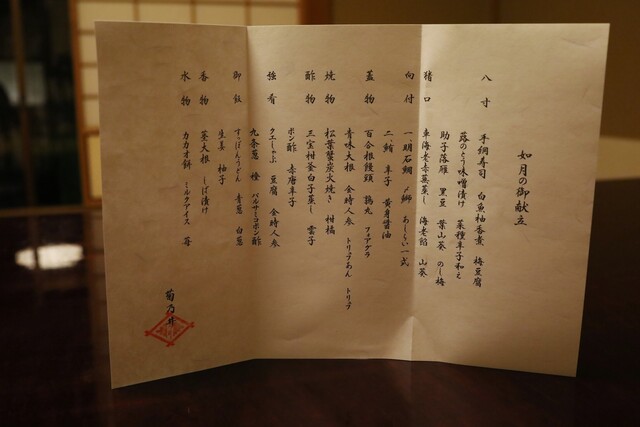 如月の御献立
八寸 手綱寿司 白魚柚香煮 梅豆腐
蕗のとう味噌漬け 菜種辛子和え
助子落雁 黒豆 葉山葵 のし梅
猪口 車海老赤蕪蒸し 海老餡 山葵
向付 一、明石鯛 〆鰤 あしらい一式
二、鮪 辛子 黄身醤油
蓋物 百合根饅頭 鶉丸 フォアグラ
青味大根 金時人参 トリュフあん トリュフ
焼物 松葉蟹炭火焼き 柑橘
酢物 三宝柑釜白子蒸し 雲子
ポン酢 赤唐辛子
強肴 クエしゃぶ 豆腐 金時人参
九条葱 橙 バルサミコポン酢
御飯 すっぽんうどん 青葱 白葱
生姜 柚子
香物 茎大根 しば漬け
水物 カカオ餅 ミルクアイス 苺
菊乃井